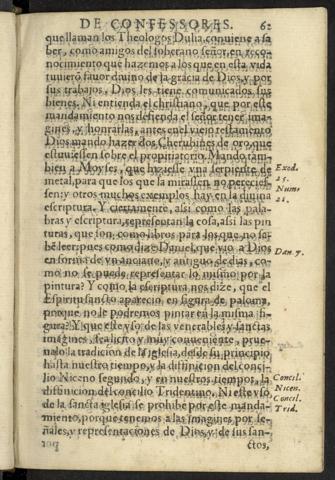 DE CONFESSORES. 62
que llaman los Theologos Dulia, conviene a sa
ber, como amigos del soberano señor, en reco-
nocimiento que hazemos a los que en esta vida
tuuierõ fauor diuino de la gracia de Dios, y por
sus trabajos, Dios les tiene comunicados sus
bienes. Ni entienda el christiano, que por este
mandamiento nos defienda el señor tener ima-
gines, y honrarlas, antes en el viejo testamento
Dios mando hazer dos Cherubines de oro, que
estuuiessen sobre el propiciatorio. Mando tam-
bien a Moyses, que hiziesse vna serpiente de
metal, para que los que la mirassen no perecies-
sen: y otros muchos exemplos hay en la diuina
escriptura. Y ciertamente, assi como las pala-
bras y escriptura, representan la cosa, assi las pin
turas, que son como libros para los que no sa-
bẽ leer, pues como dize Daniel, que vio a Dios
en forma de vn anciano, y antiguo de dias, co-
mo no se puede representar lo mismo por la
pintura? Y como la escriptura nos dize, que el
Espiritu sancto aparecio en figura de paloma,
porque no le podremos pintar en la misma fi-
gura? Y que este vso de las venerables y sanctas
imagines sea licito y muy conueniente, prue-
nalo la tradicion de la iglesia, desde su principio
hasta nuestro tiempo, y la diffinicion del conci-
lio Niceno segundo, y en nuestros tiempos, la
diffinicion del concilio Tridentino. Ni este vso
de la sancta iglesia se prohibe por este manda-
miento, porque tenemos a las imagines por se-
ñales, y representaciones de Dios, y de sus san-
ctos,
Exod.
25.
Num.
21.
Dan. 7.
Concil.
Nicen.
Concil.
Trid.